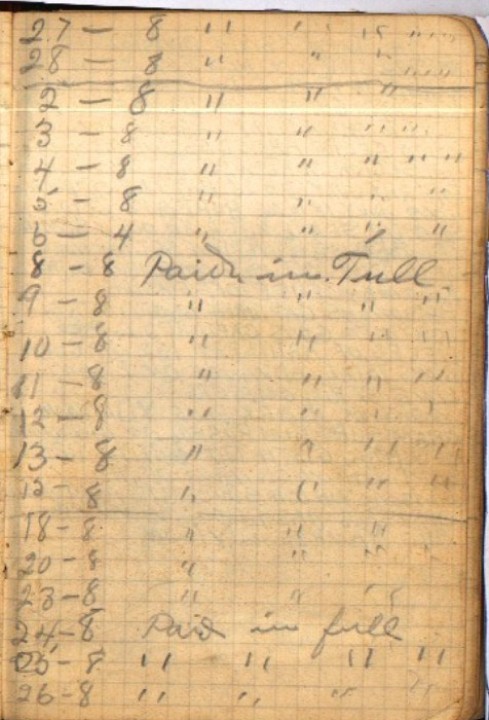 27 - 8 " " " "
28 - 8 " " " "
2 - 8 " " "
3 - 8 " " " "
4 - 8 " " " "
5 - 8 " " "
6 - 4 " " " "
8 - 8 Paid in Full
9 - 8 " " " "
10 - 8 " " " "
11 - 8 " " " "
12 - 8 " " " "
13 - 8 " " " "
15 - 8 " " " "
18 - 8 " " "
20 - 8 " " "
23 - 8 " " "
24 - 8 Paid in full
25 - 8 " " " "
26 - 8 " " " "